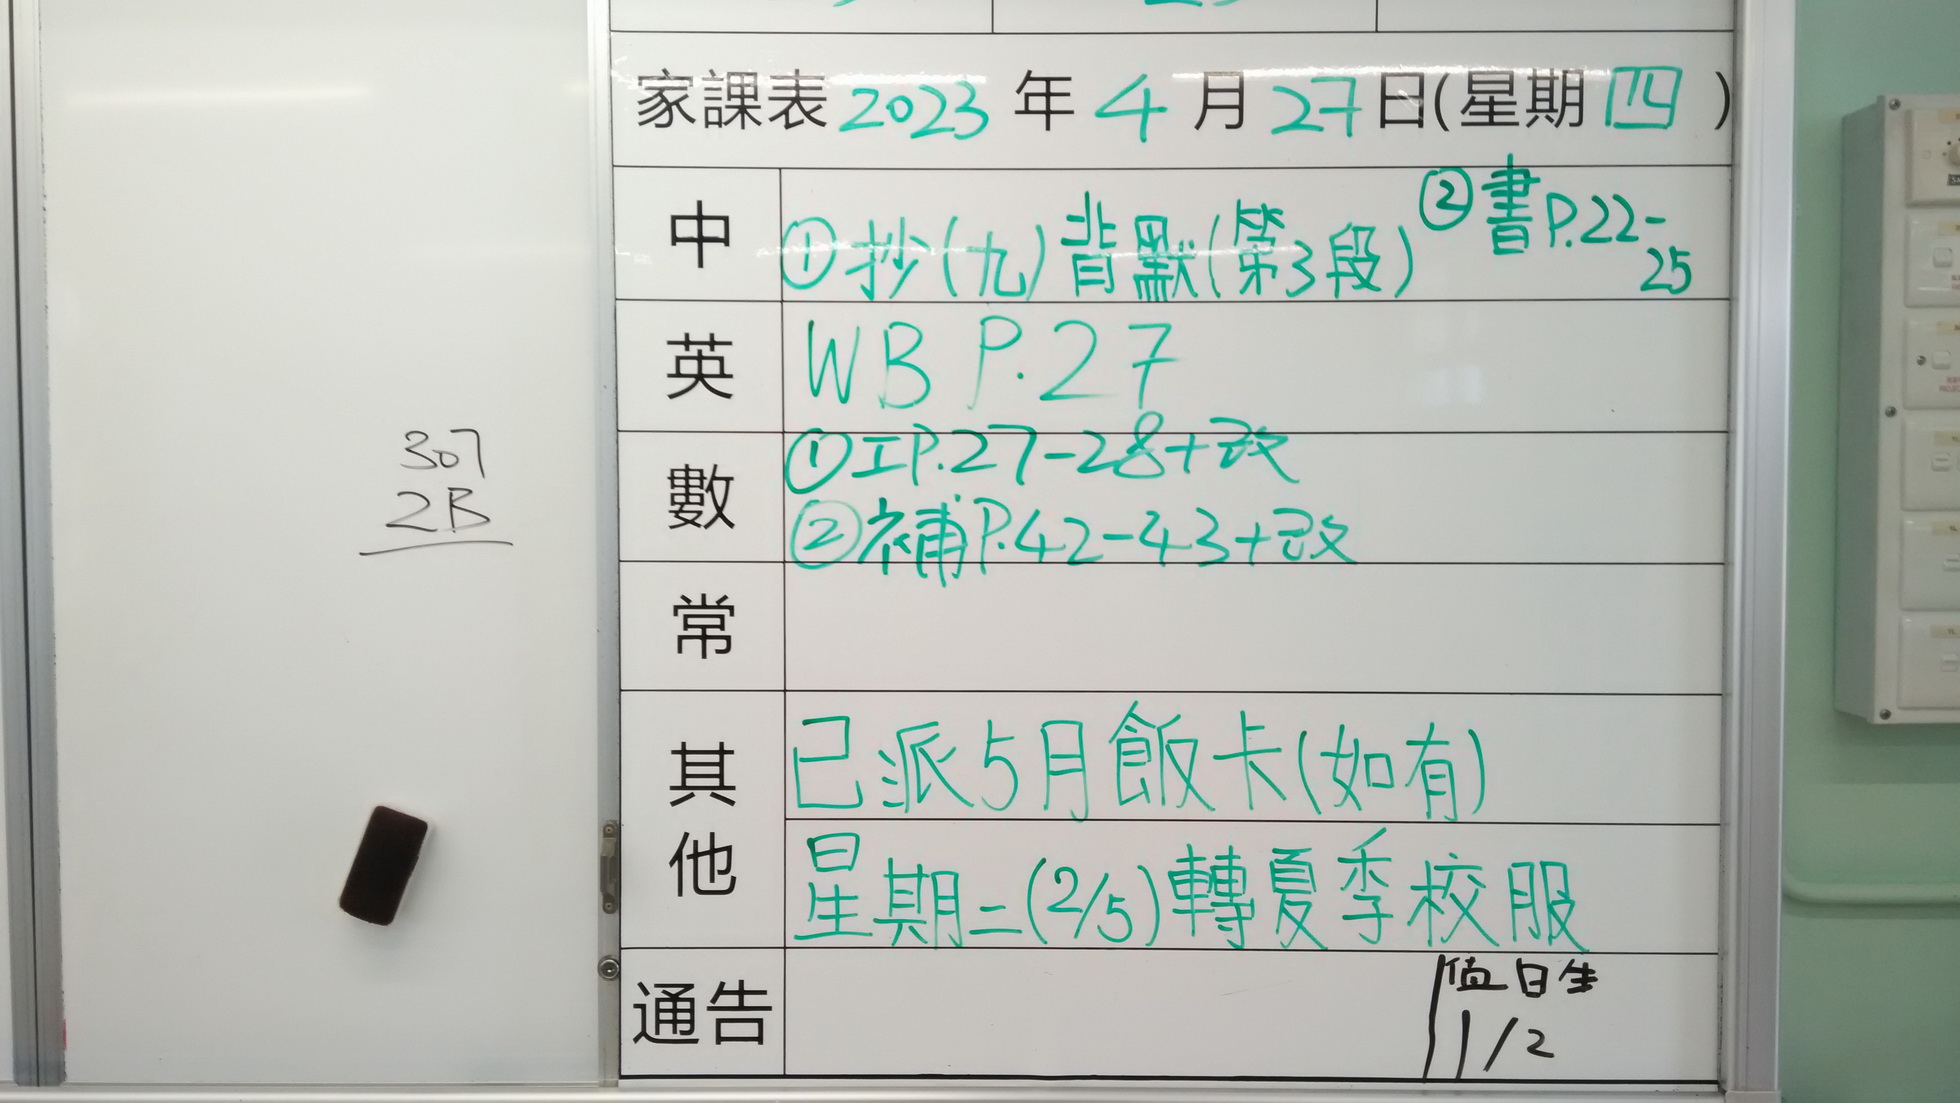 家課表 2023 年 4 月 27 日(星期四)
中 ①抄(九)背默(第3段) ②書P.22-25
英 WB P.27
數 ①工P.27-28+改
②補P.42-43+改
常
其他 已派5月飯卡(如有)
星期二(2/5)轉夏季校服
通告
值日生
1/2
307
2B